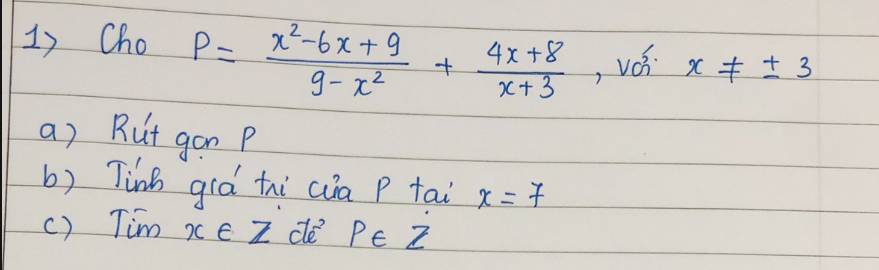 1> Cho P = (x² - 6x + 9)/(9 - x²) + (4x + 8)/(x + 3), với x ≠ ± 3
a) Rút gọn P
b) Tính giá trị của P tại x = 7
c) Tìm x ∈ Z để P ∈ Z